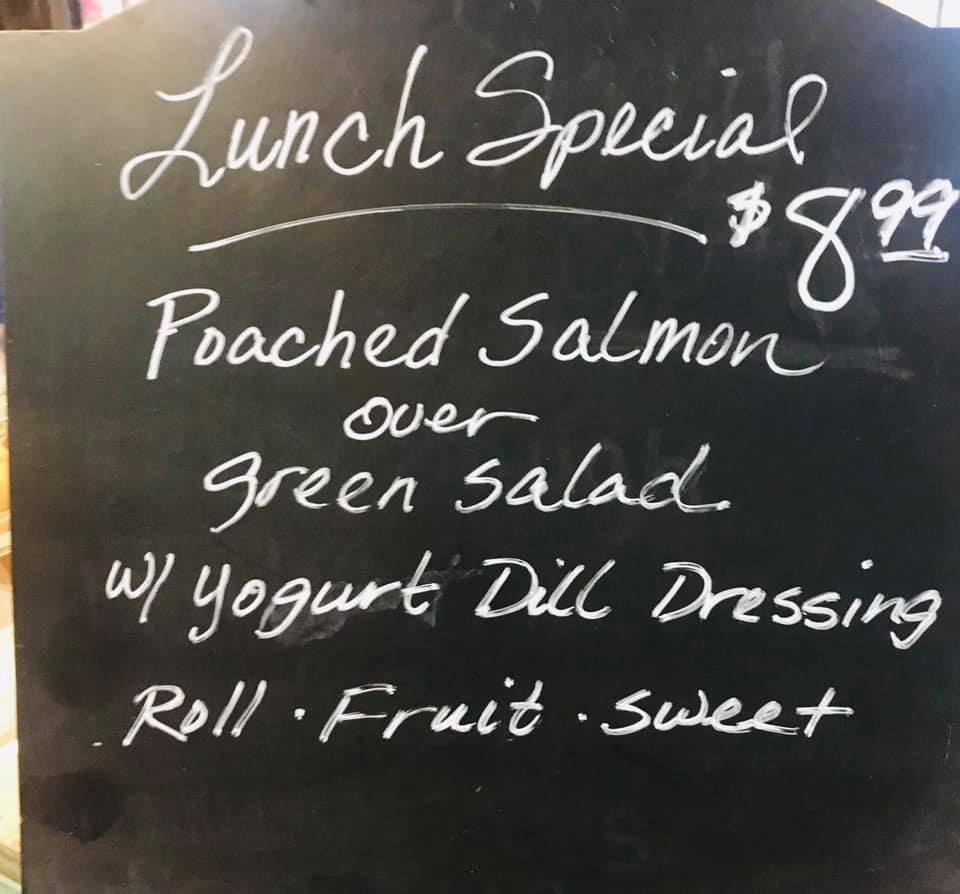 Lunch Special
$8.99
Poached Salmon
over
green salad
w/ yogurt Dill Dressing
Roll · Fruit · sweet